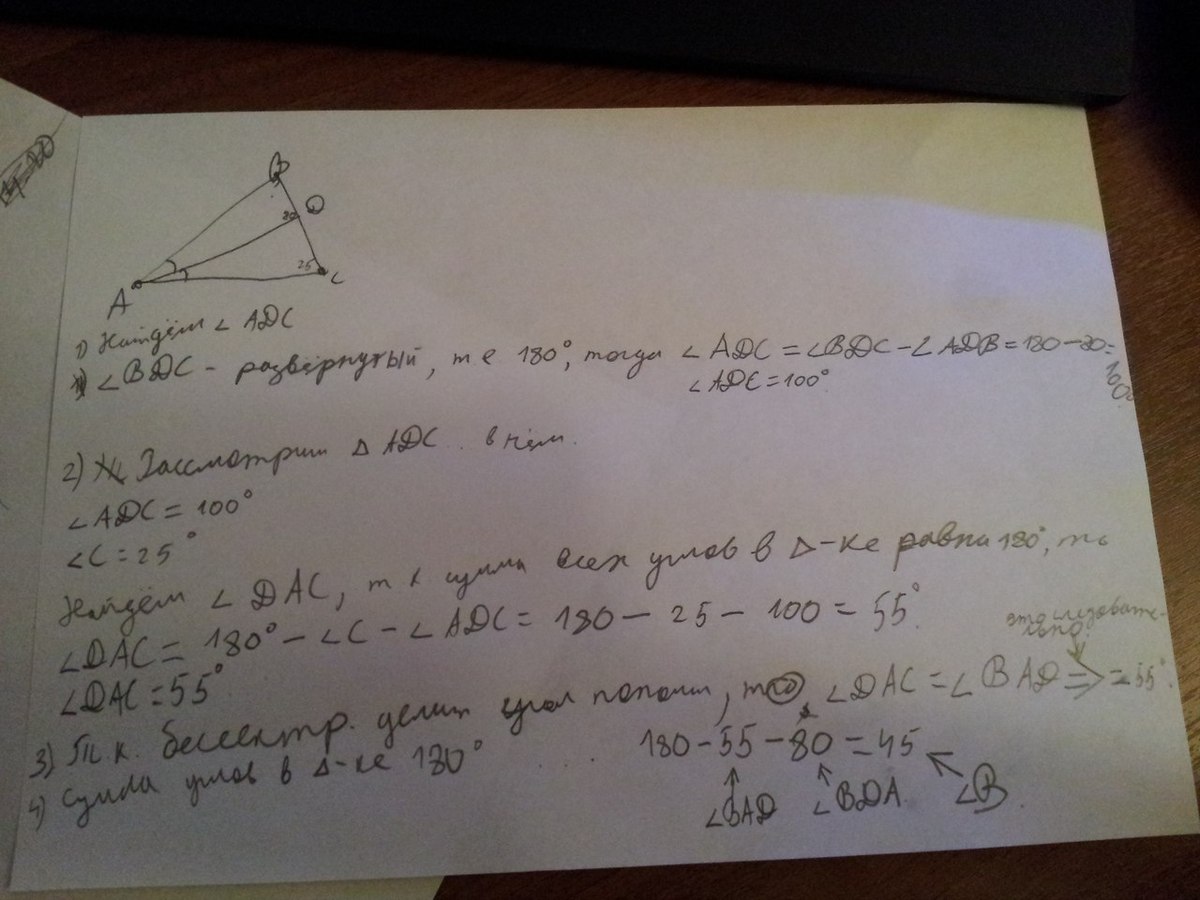 B
D
80
25
A
C
1) Найдём ∠ ADC
∠BDC - развёрнутый, т е 180°, тогда ∠ADC = ∠BDC - ∠ADB = 180 - 80 = 100°
∠ADC = 100°
2) Рассмотрим Δ ADC в нём.
∠ADC = 100°
∠C = 25°
Найдём ∠DAC, т к сумма всех углов в Δ-ке равна 180°, то
∠DAC = 180° - ∠C - ∠ADC = 180 - 25 - 100 = 55°
∠DAC = 55°
это следовате-
льно
3) Т.к. бессектр. делит угол попалам, то ∠DAC = ∠BAD => = 55°.
4) Сумма углов в Δ-ке 180° .... 180 - 55 - 80 = 45
∠BAD ∠BDA ∠B